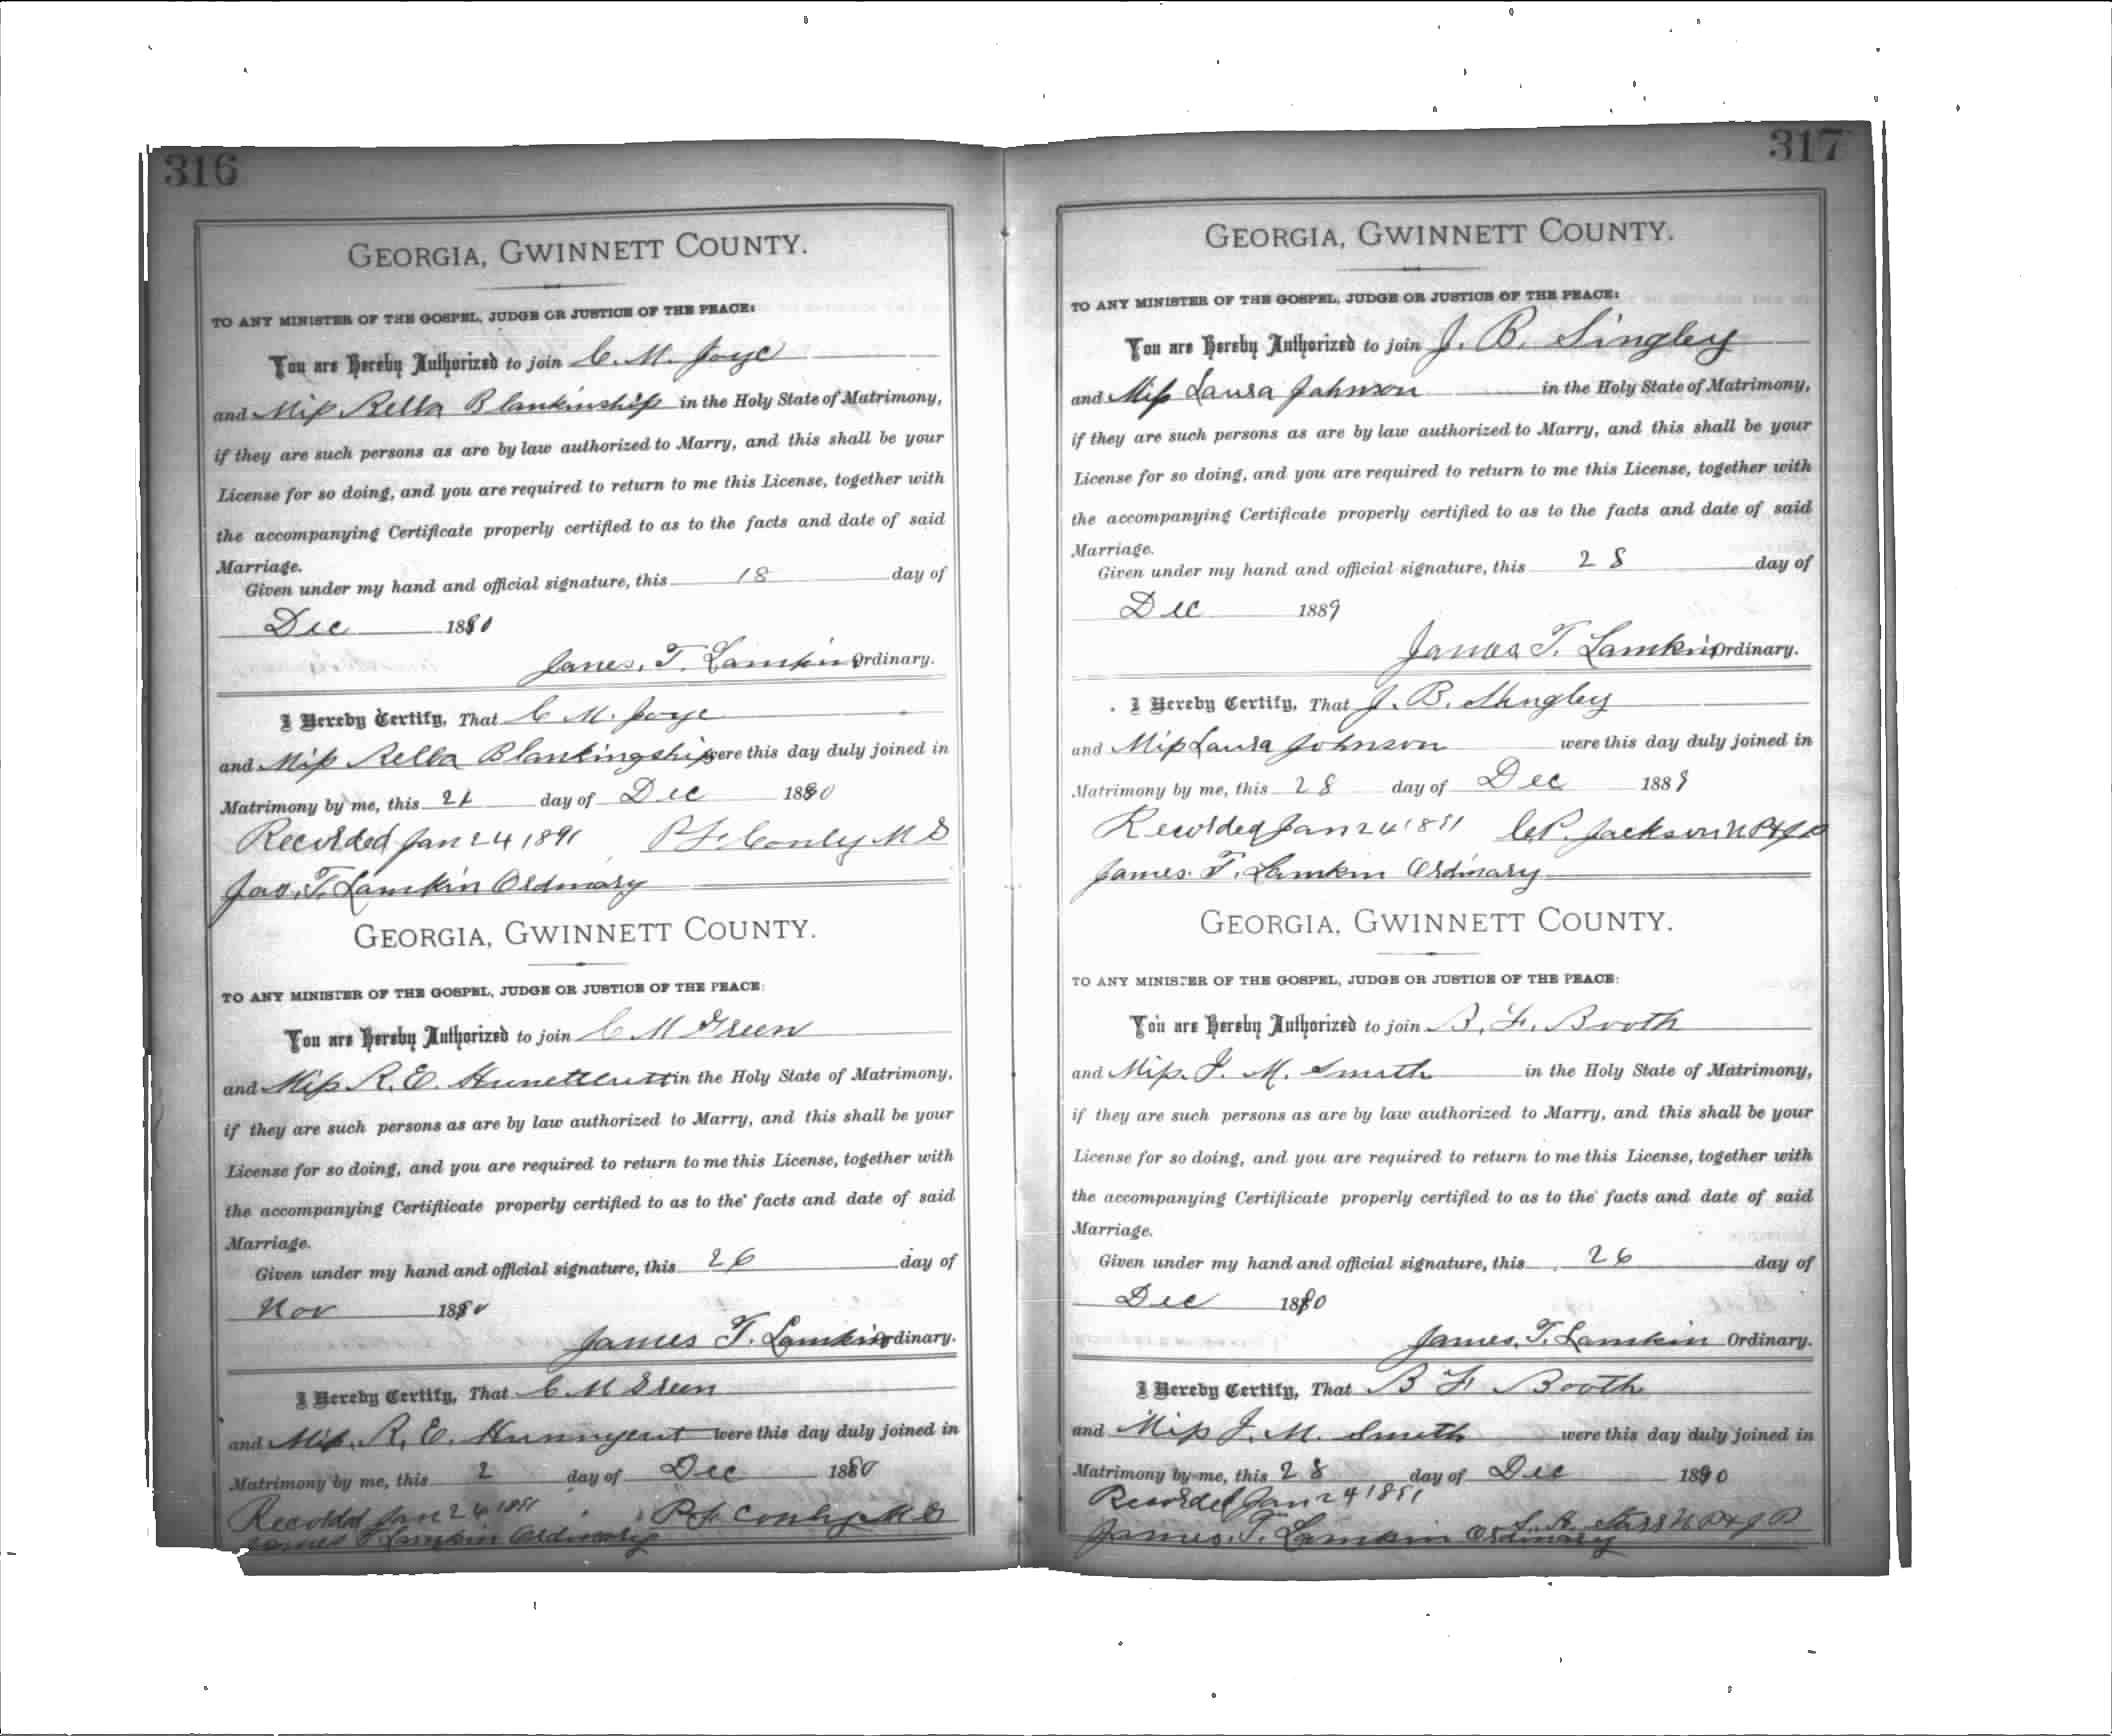 316
GEORGIA, GWINNETT COUNTY.
TO ANY MINISTER OF THE GOSPEL, JUDGE OR JUSTICE OF THE PEACE:
You are Hereby Authorized to join C. M. Joye
and Miss Rella Blankinship in the Holy State of Matrimony,
if they are such persons as are by law authorized to Marry, and this shall be your
License for so doing, and you are required to return to me this License, together with
the accompanying Certificate properly certified to as to the facts and date of said
Marriage.
Given under my hand and official signature, this 18 day of
Dec 1890
James. T. Lamkin Ordinary.
I Hereby Certify, That C M. Joye
and Miss Rella Blankingship were this day duly joined in
Matrimony by me, this 21 day of Dec 1890
Recorded Jan 24 1891 P F Conly M G
Jas. T. Lamkin Ordinary
GEORGIA, GWINNETT COUNTY.
TO ANY MINISTER OF THE GOSPEL, JUDGE OR JUSTICE OF THE PEACE:
You are Hereby Authorized to join C M Green
and Miss R. E. in the Holy State of Matrimony,
if they are such persons as are by law authorized to Marry, and this shall be your
License for so doing, and you are required to return to me this License, together with
the accompanying Certifiicate properly certified to as to the facts and date of said
Marriage.
Given under my hand and official signature, this 26 day of
Nov 1890
James T. Lamkin Ordinary.
I Hereby Certify, That C M Green
and Miss. R. E. were this day duly joined in
Matrimony by me, this 2 day of Dec 1890
Recorded Jan 24 1891 P F Conly M G
James T Lamkin Ordinary
317
GEORGIA, GWINNETT COUNTY.
TO ANY MINISTER OF THE GOSPEL, JUDGE OR JUSTICE OF THE PEACE:
You are Hereby Authorized to join J. B. Singley
and Miss Laura Johnson in the Holy State of Matrimony,
if they are such persons as are by law authorized to Marry, and this shall be your
License for so doing, and you are required to return to me this License, together with
the accompanying Certificate properly certified to as to the facts and date of said
Marriage.
Given under my hand and official signature, this 28 day of
Dec 1889
James T. Lamkin Ordinary.
I Hereby Certify, That J. B. Shngley
and Miss Laura Johnson were this day duly joined in
Matrimony by me, this 28 day of Dec 1889
Recorded Jan 24 1891 C. P. Jackson N P & J P
James. T. Lamkin Ordinary
GEORGIA, GWINNETT COUNTY.
TO ANY MINISTER OF THE GOSPEL, JUDGE OR JUSTICE OF THE PEACE:
You are Hereby Authorized to join B. F. Booth
and Miss. J. M. Smith in the Holy State of Matrimony,
if they are such persons as are by law authorized to Marry, and this shall be your
License for so doing, and you are required to return to me this License, together with
the accompanying Certifiicate properly certified to as to the facts and date of said
Marriage.
Given under my hand and official signature, this 26 day of
Dec 1890
James. T. Lamkin Ordinary.
I Hereby Certify, That B F Booth
and Miss J. M. Smith were this day duly joined in
Matrimony by me, this 28 day of Dec 1890
Recorded Jan 24 1891
James. T. Lamkin Ordinary S. A. Starr N P & J P